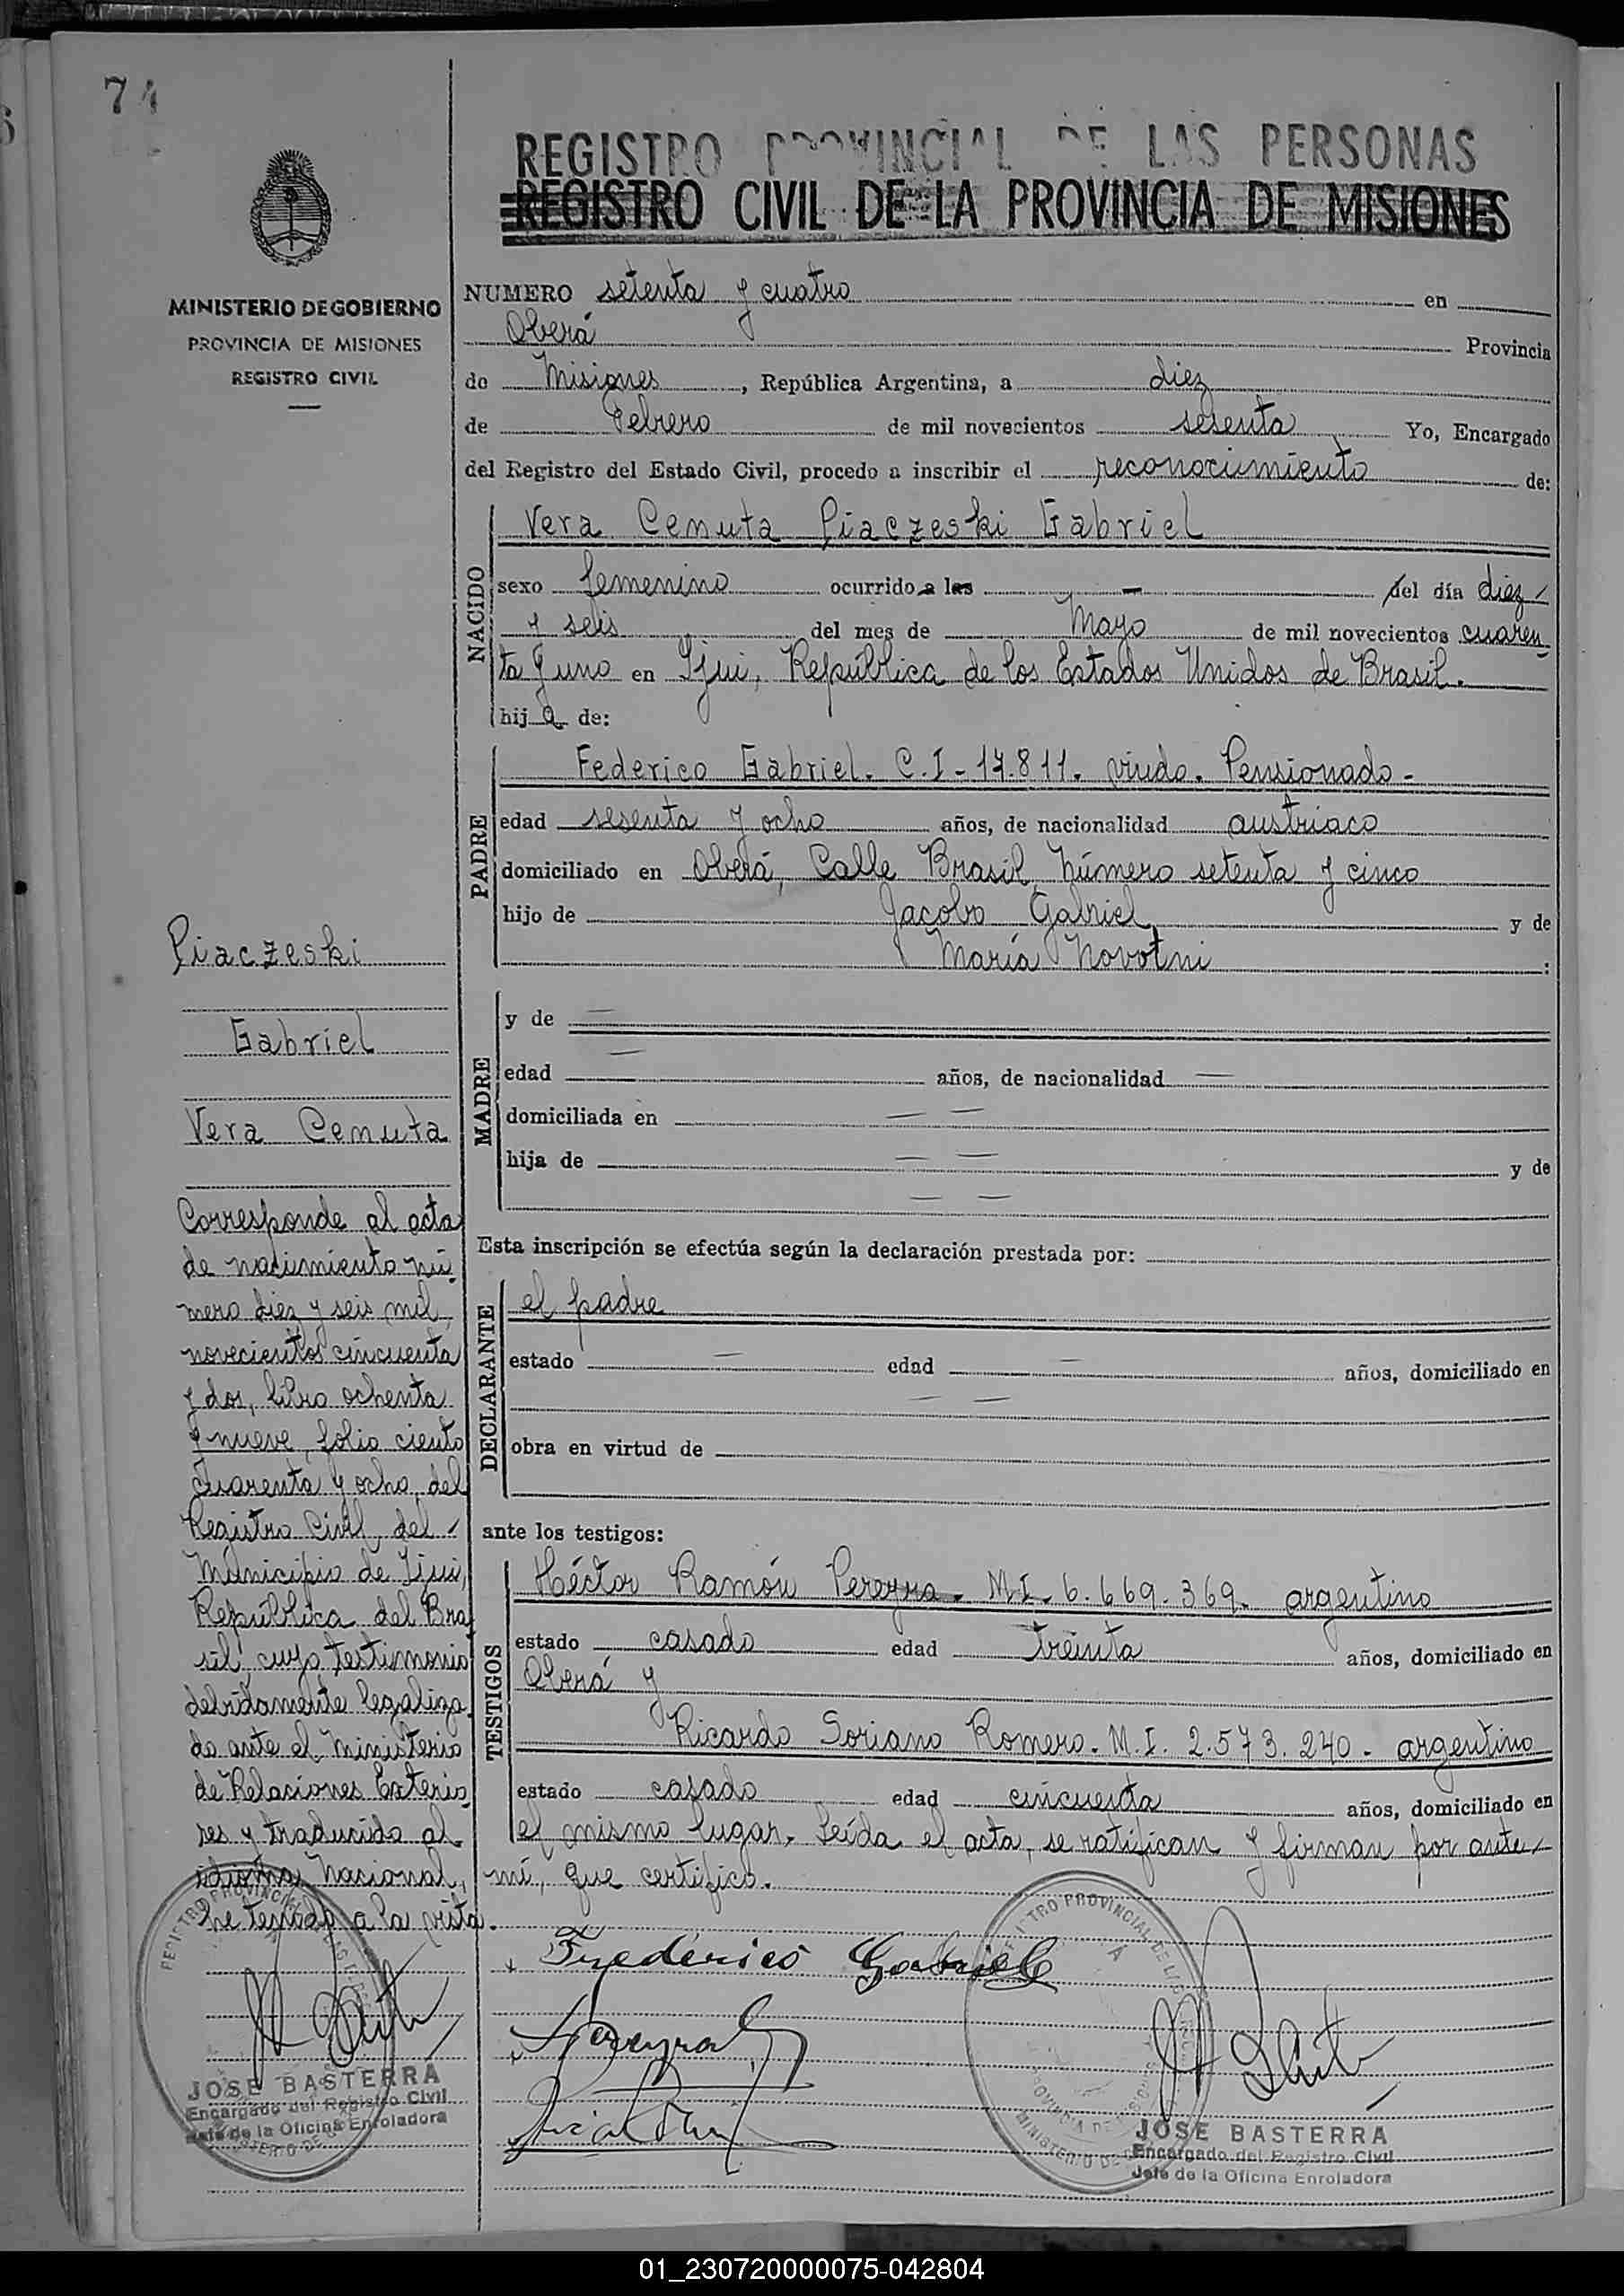 74
REGISTRO PROVINCIAL DE LAS PERSONAS
REGISTRO CIVIL DE LA PROVINCIA DE MISIONES
MINISTERIO DE GOBIERNO
PROVINCIA DE MISIONES
REGISTRO CIVIL
NUMERO setenta y cuatro en
Oberá Provincia
de Misiones, República Argentina, a diez
de Febrero de mil novecientos sesenta Yo, Encargado
del Registro del Estado Civil, procedo a inscribir el reconocimiento de:
NACIDO
Vera Cenuta Piaczeski Gabriel
sexo femenino ocurrido a las — del día diez
y seis del mes de Mayo de mil novecientos cuaren
ta y uno en Ijui, República de los Estados Unidos de Brasil.
hija de:
PADRE
Federico Gabriel. C.I- 17.811. viudo. Pensionado-
edad sesenta y ocho años, de nacionalidad austriaco
domiciliado en Oberá, Calle Brasil, Número setenta y cinco
hijo de Jacobo Gabriel y de
María Novotni :
MADRE
y de —
edad — años, de nacionalidad —
domiciliada en — —
hija de — — y de
— —
Esta inscripción se efectúa según la declaración prestada por:
DECLARANTE
el padre
estado — edad — años, domiciliado en
— —
obra en virtud de
ante los testigos:
TESTIGOS
Héctor Ramón Pereyra. M.I. 6.669.369. argentino
estado casado edad treinta años, domiciliado en
Oberá y
Ricardo Soriano Romero. M.I. 2.573.240- argentino
estado casado edad cincuenta años, domiciliado en
el mismo lugar. Leída el acta, se ratifican y firman por ante
mí, que certifico.
Piaczeski
Gabriel
Vera Cenuta
Corresponde al acta
de nacimiento nú
mero diez y seis mil
novecientos cincuenta
y dos, libro ochenta
y nueve, folio ciento
cuarenta y ocho, del
Registro Civil del
Municipio de Ijui,
República del Bra
sil, cuyo testimonio
debidamente legaliza
do ante el Ministerio
de Relaciones Exterio
res y traducido al
idioma Nacional,
he tenido a la vista.
Frederico Gabriel
Pereyra
JOSE BASTERRA
Encargado del Registro Civil
Jefe de la Oficina Enroladora
JOSE BASTERRA
Encargado del Registro Civil
Jefe de la Oficina Enroladora
01_230720000075-042804